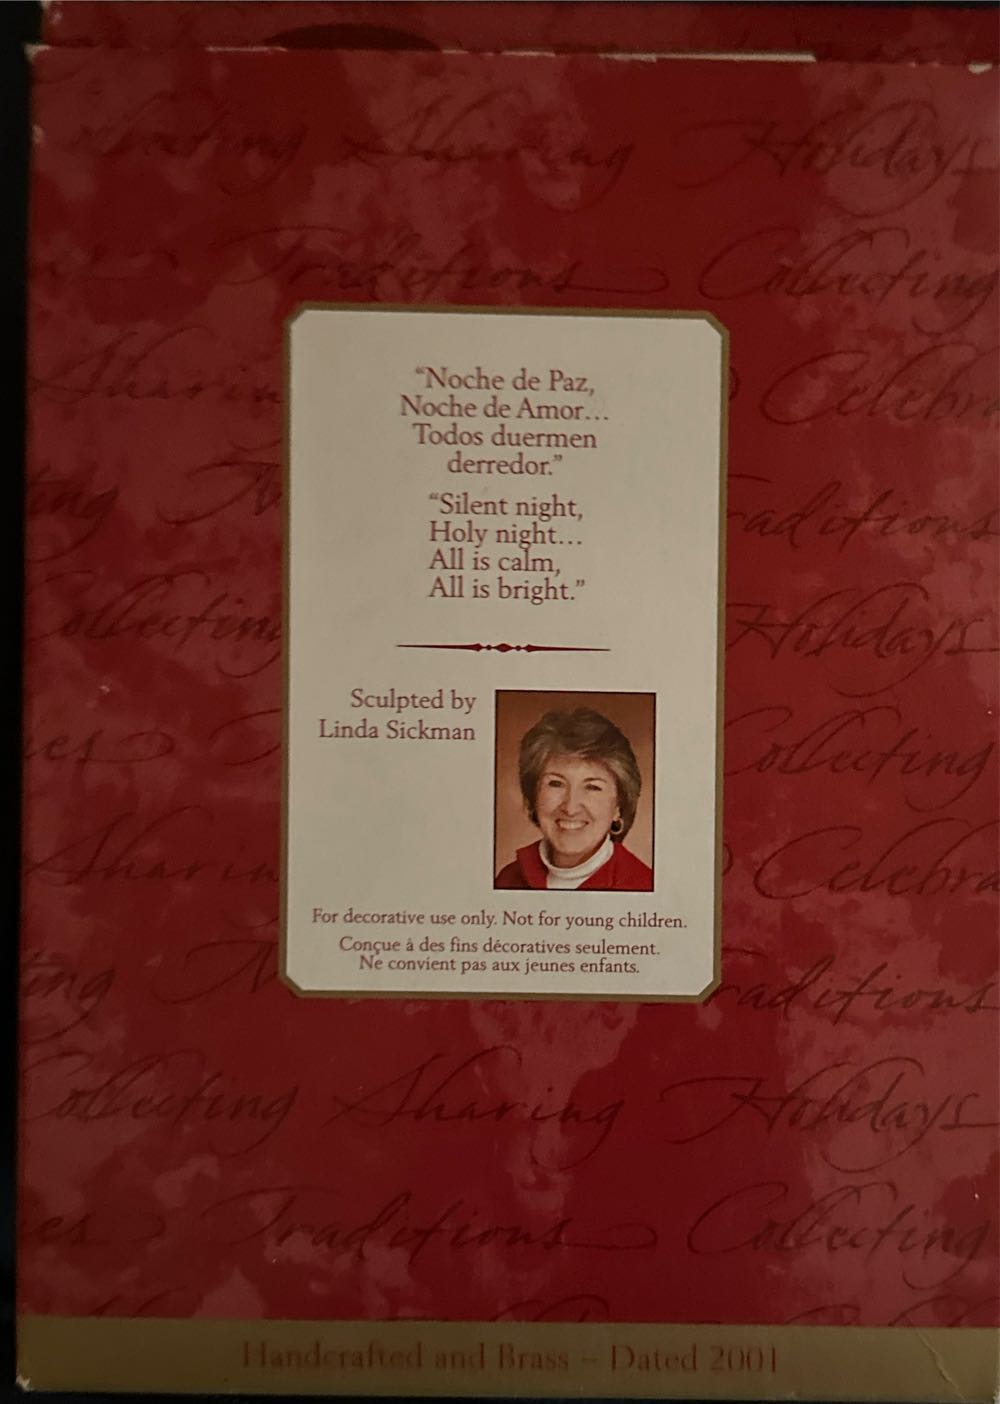 Sharing Holidays
Traditions Collecting
Sharing Celebra
Traditions
Collecting Holidays
Collecting
Sharing Celebra
Traditions
Collecting Sharing Holidays
Traditions Collecting
“Noche de Paz,
Noche de Amor...
Todos duermen
derredor.”
“Silent night,
Holy night...
All is calm,
All is bright.”
Sculpted by
Linda Sickman
For decorative use only. Not for young children.
Conçue à des fins décoratives seulement.
Ne convient pas aux jeunes enfants.
Handcrafted and Brass – Dated 2001